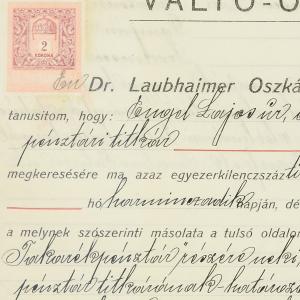 VÁLTÓ-Ó
2
KORONA
Én Dr. Laubhaimer Oszká
tanusitom, hogy: Engel Lajos úr, a
pénztári titkár
megkeresésére ma, azaz egyezerkilenczszáz ti
hó harminczadik napján, dé
a melynek szószerinti másolata a tulsó oldalon
Takarékpénztár" részére neki,
pénztár titkárának határozo